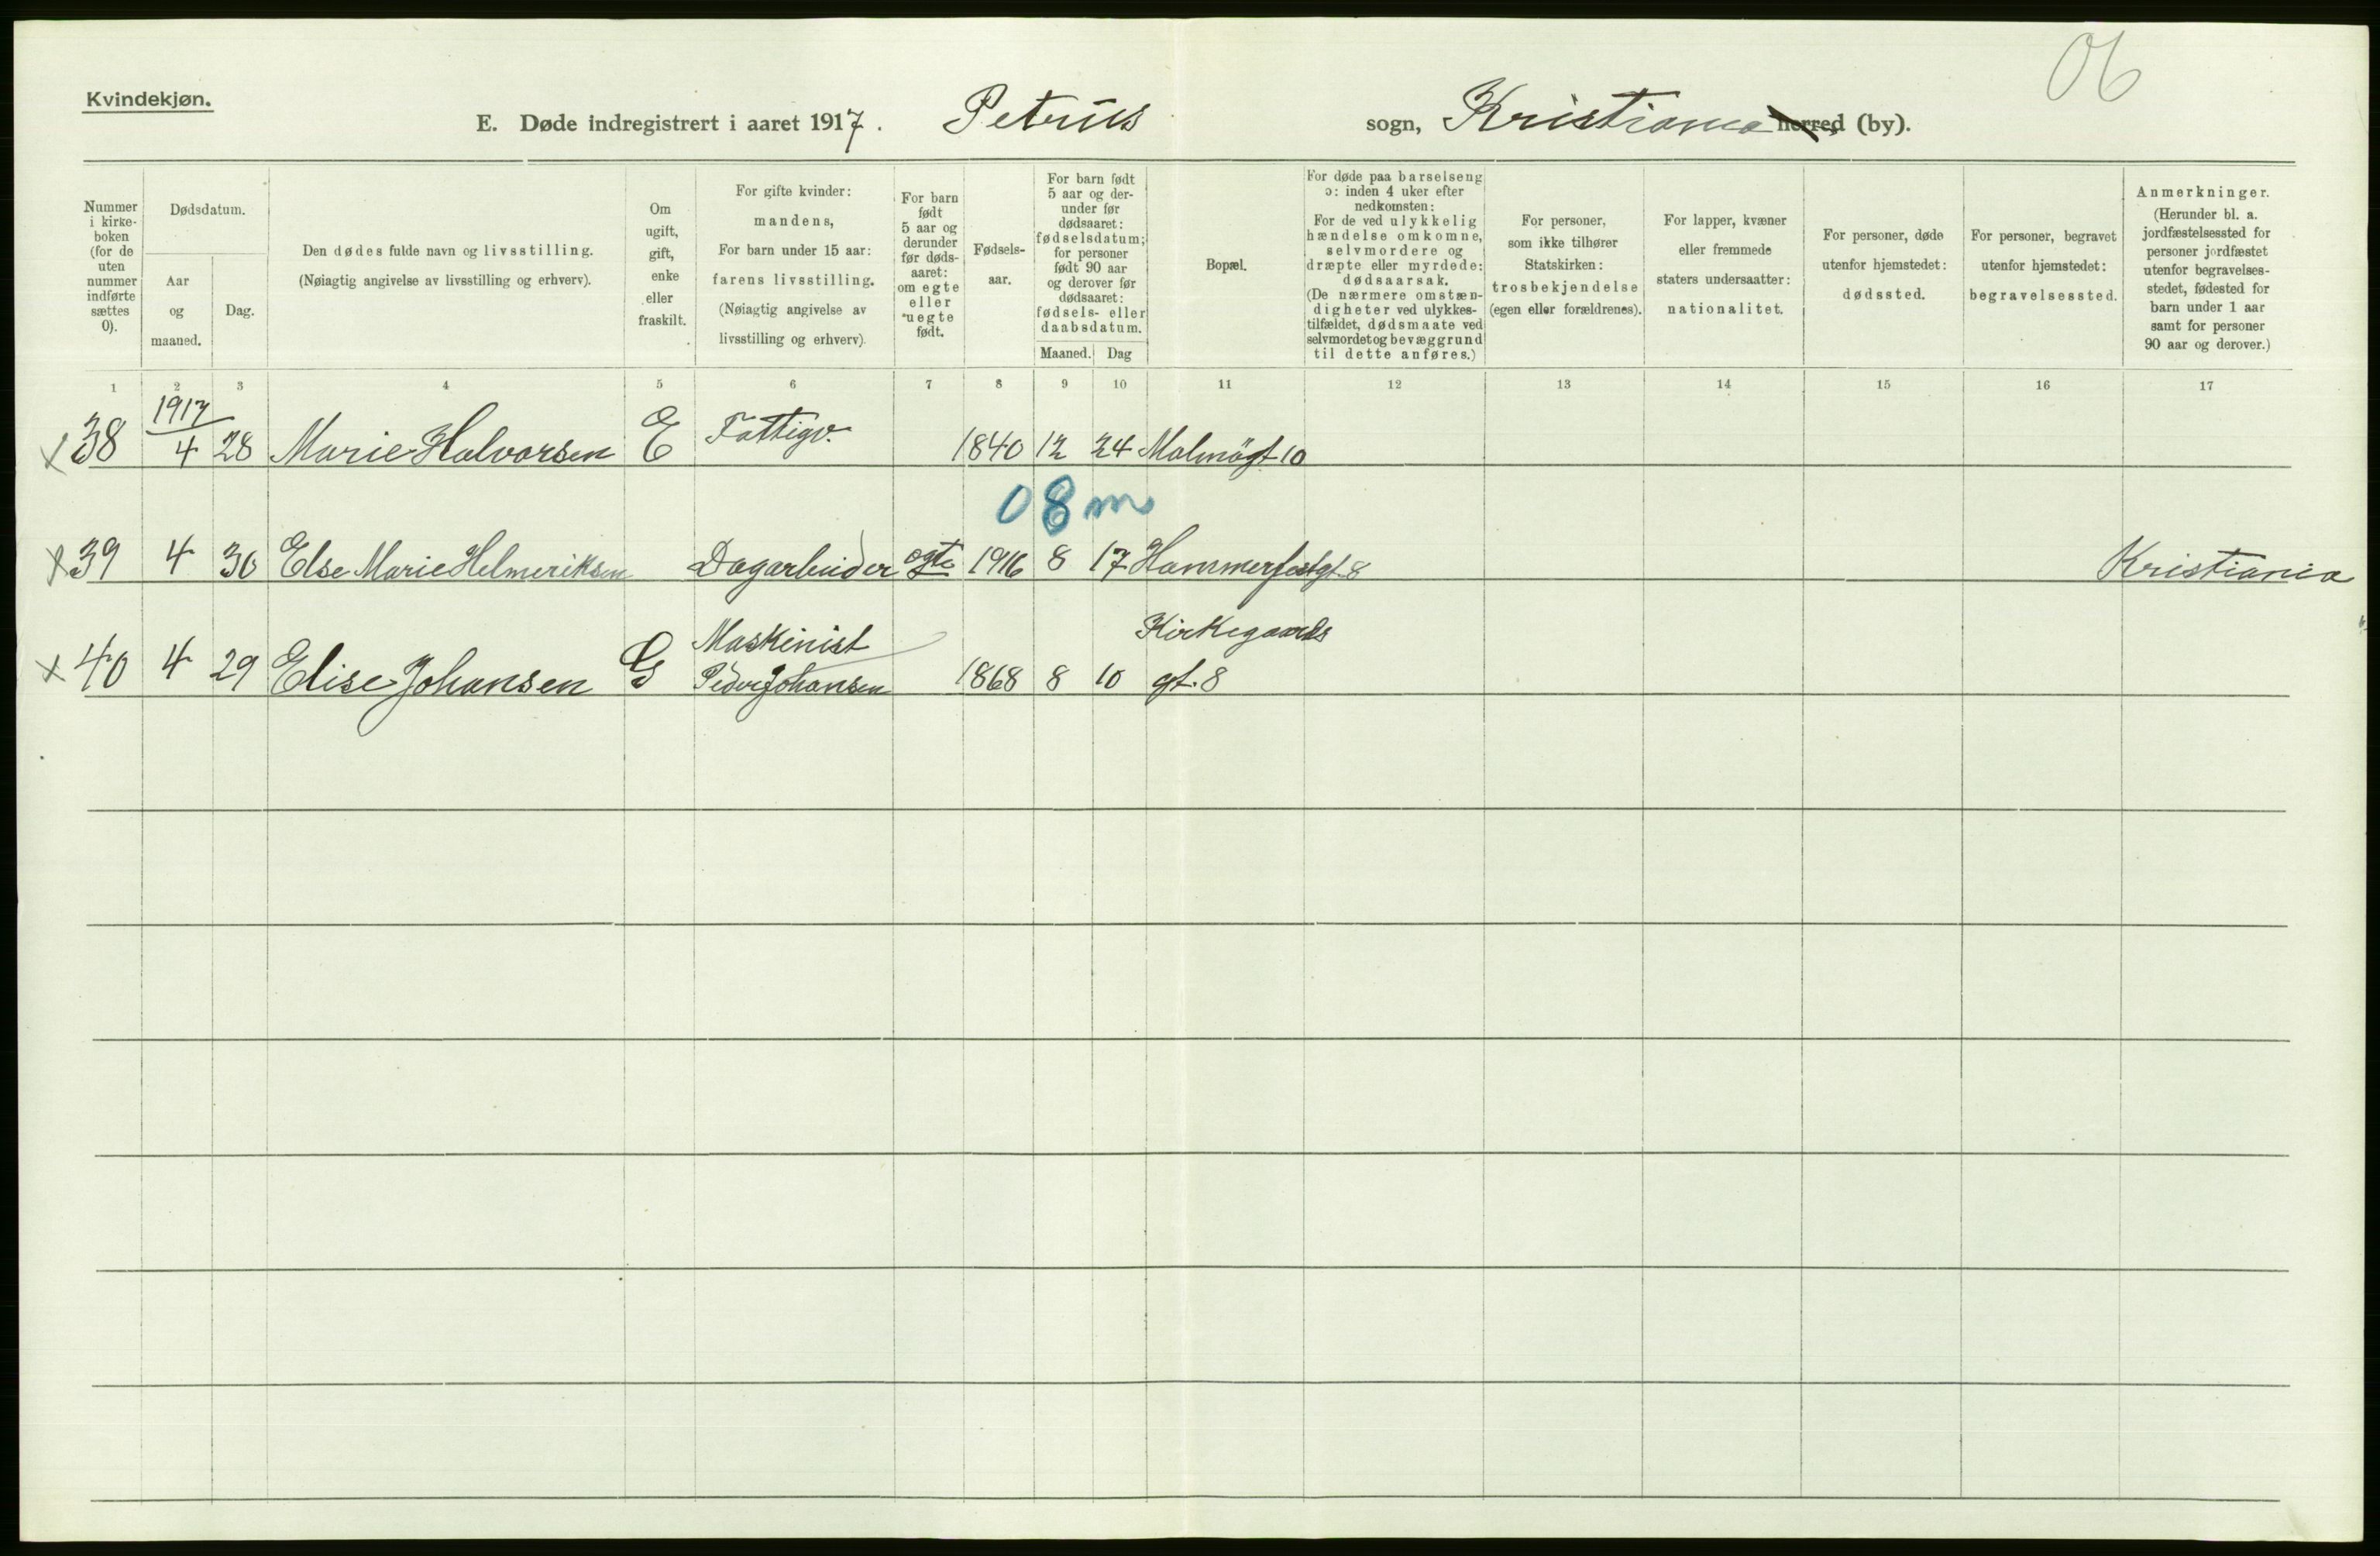 06
Kvindekjøn.
E. Døde indregistrert i aaret 1917. Petrus sogn, Kristiania herred (by).
Nummer i kirke-boken (for de uten nummer indførte sættes 0).
Dødsdatum.
Aar og maaned.
Dag.
Den dødes fulde navn og livsstilling.
(Nøiagtig angivelse av livsstilling og erhverv).
Om ugift, gift, enke eller fraskilt.
For gifte kvinder:
mandens,
For barn under 15 aar:
farens livsstilling.
(Nøiagtig angivelse av
livsstilling og erhverv).
For barn født 5 aar og derunder før døds-aaret: om egte eller uegte født.
Fødsels-aar.
For barn født 5 aar og der-under før dødsaaret: fødselsdatum; for personer født 90 aar og derover før dødsaaret: fødsels- eller daabsdatum.
Maaned. Dag
Bopæl.
For døde paa barselseng
ɔ: inden 4 uker efter
nedkomsten:
For de ved ulykkelig
hændelse omkomne,
selvmordere og
dræpte eller myrdede:
dødsaarsak.
(De nærmere omstæn-
digheter ved ulykkes-
tilfældet, dødsmaate ved
selvmordet og bevæggrund
til dette anføres.)
For personer,
som ikke tilhører
Statskirken:
trosbekjendelse
(egen eller forældrenes).
For lapper, kvæner
eller fremmede
staters undersaatter:
nationalitet.
For personer, døde
utenfor hjemstedet:
dødssted.
For personer, begravet
utenfor hjemstedet:
begravelsessted.
Anmerkninger.
(Herunder bl. a.
jordfæstelsessted for
personer jordfæstet
utenfor begravelses-
stedet, fødested for
barn under 1 aar
samt for personer
90 aar og derover.)
1 2 3 4 5 6 7 8 9 10 11 12 13 14 15 16 17
1917
x 38 4 28 Marie Halvorsen E Fattigv. 1840 12 24 Malmögt 10
08m
x 39 4 30 Else Marie Helmeriksen Dagarbeider egte 1916 8 17 Hammerfestgt. 8 Kristiania
Maskinist Kirkegaards
x 40 4 29 Elise Johansen G Johansen 1868 8 10 gt. 8